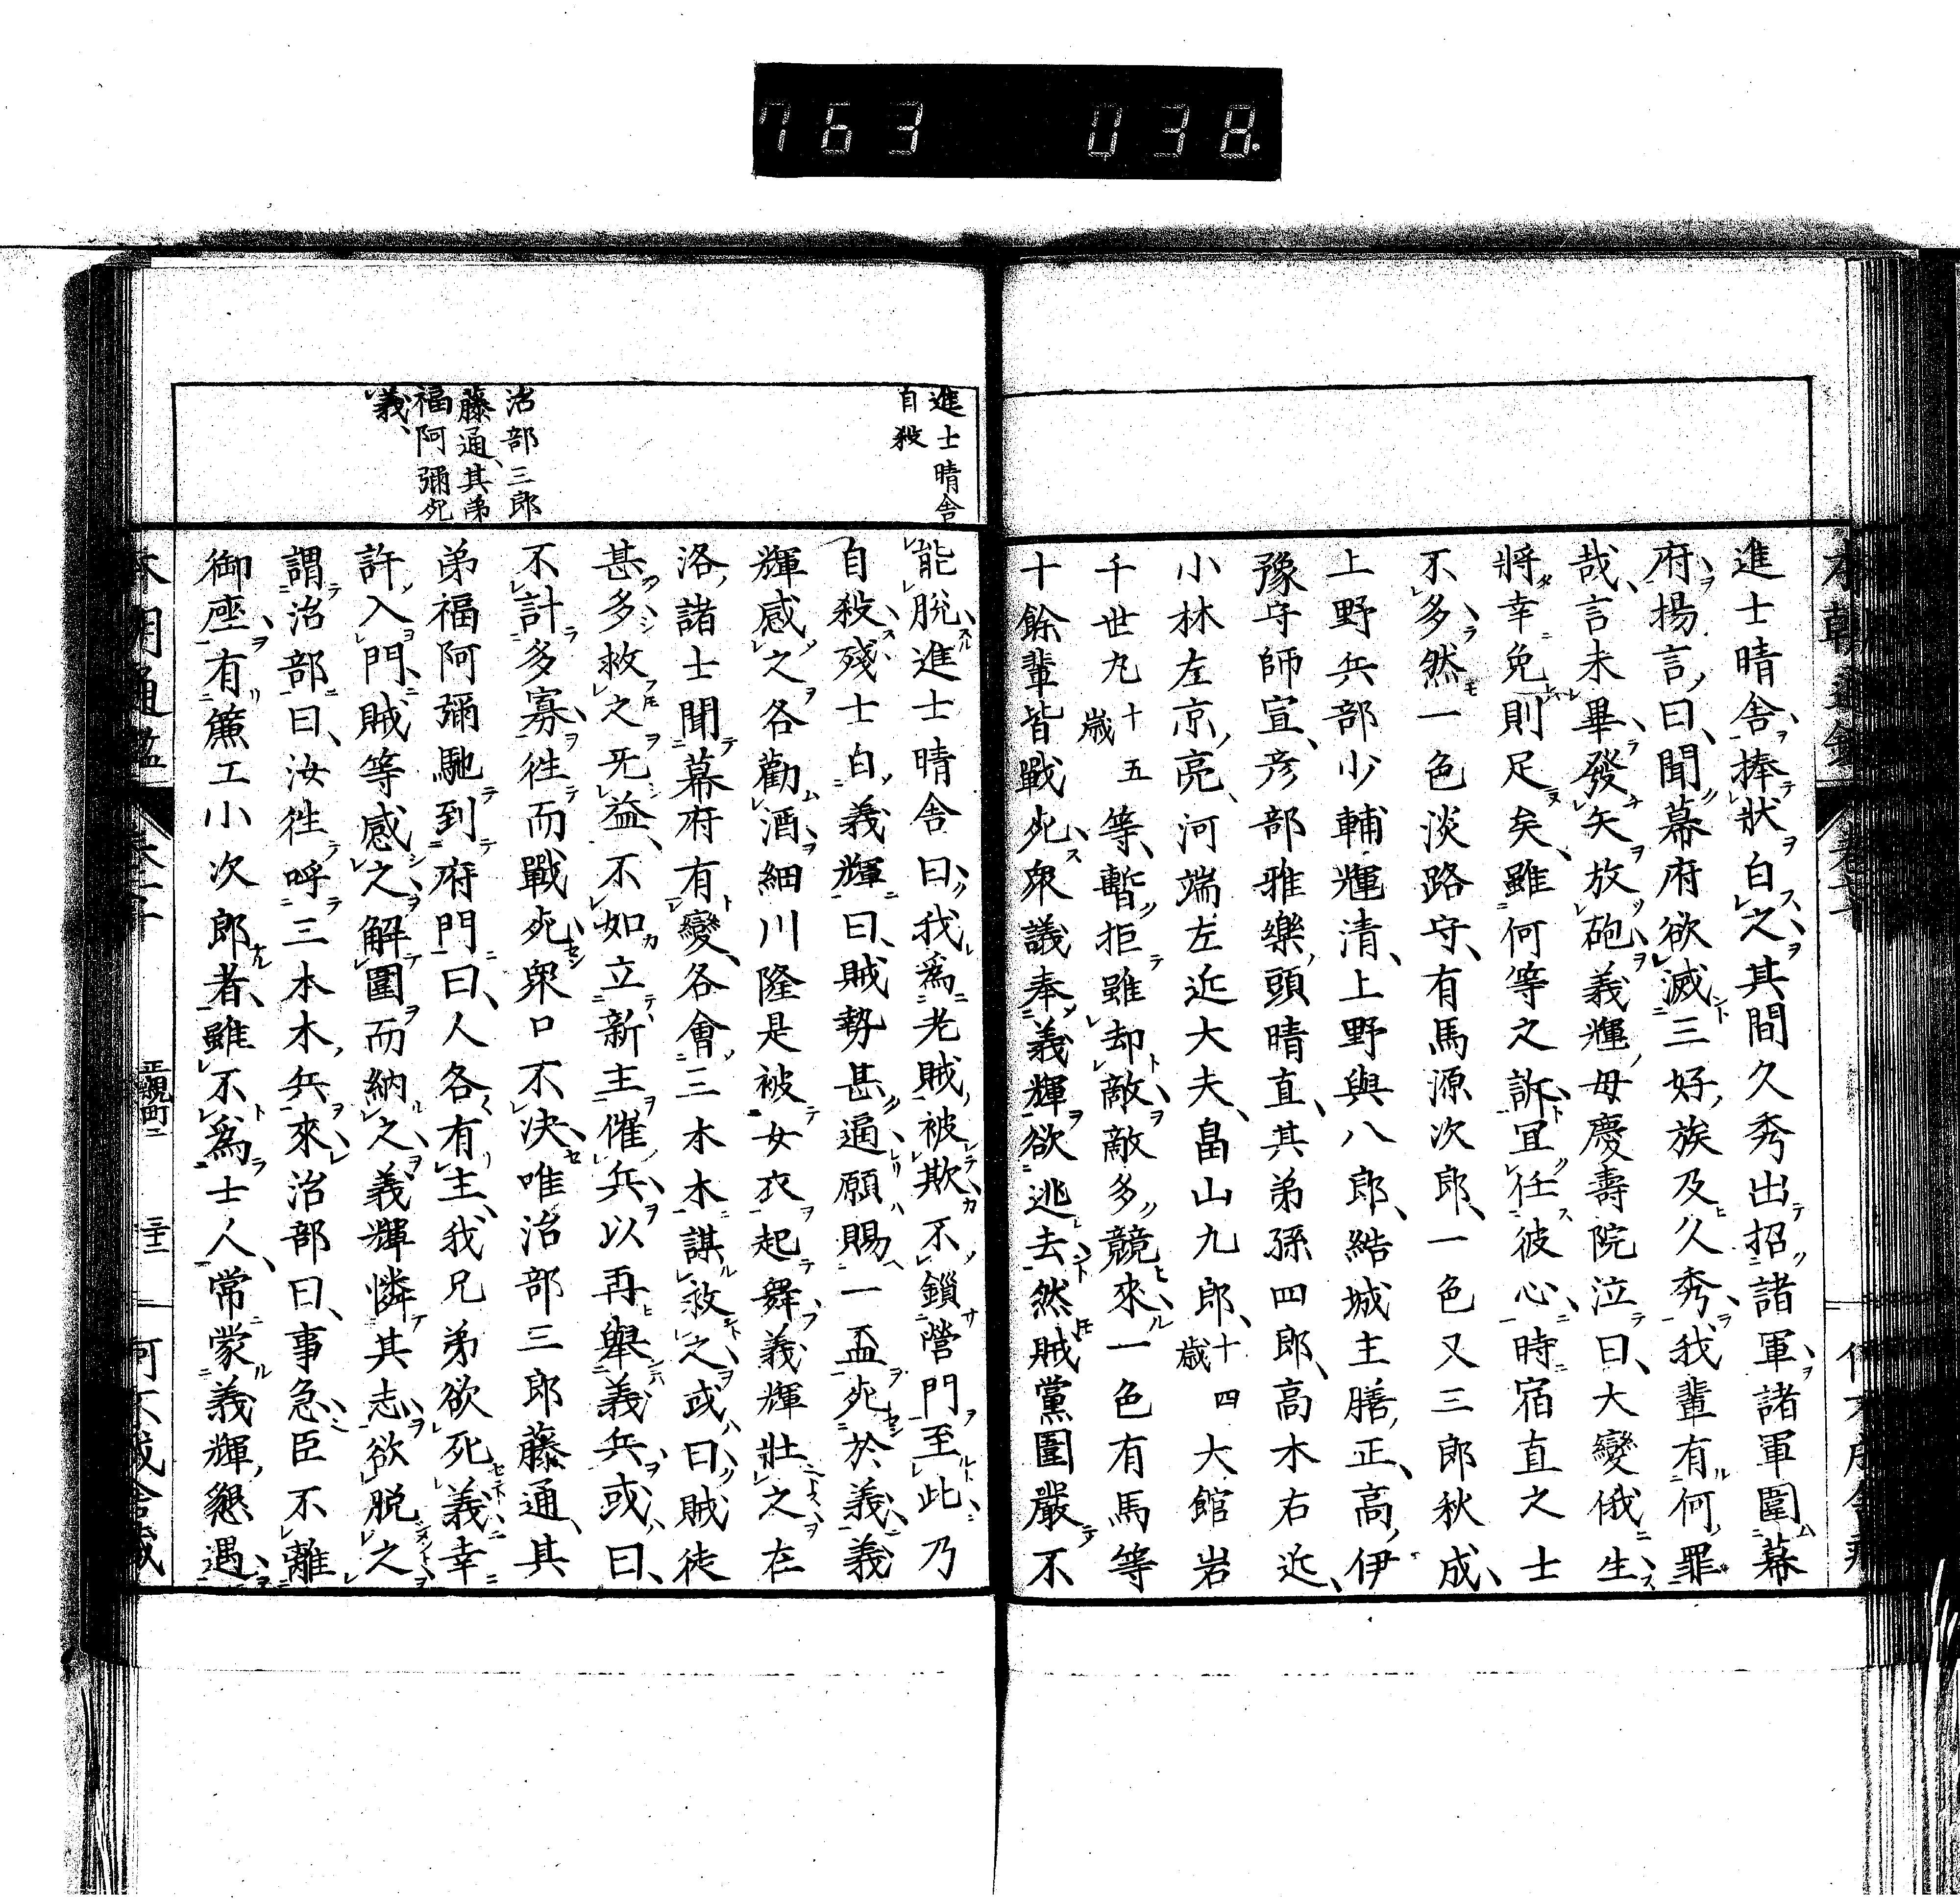 763 038
進士晴舍捧狀白之其間久秀出招諸軍諸軍圍幕
府揚言曰聞幕府欲滅三好族及久秀我輩有何罪
哉言未畢發矢放砲義輝母慶壽院泣曰大變俄生
將幸免則足矣雖何等之訴宜任彼心時宿直之士
不多然一色淡路守有馬源次郎一色又三郎秋成
上野兵部少輔輝清上野與八郎結城主膳正高伊
豫守師宣彦部雅樂頭晴直其弟孫四郎高木右近
小林左京亮河端左近大夫畠山九郎十四歲大館岩
千世丸十五歲等暫拒雖却敵敵多競來一色有馬等
十餘輩皆戰死衆議奉義輝欲逃去然賊黨圍嚴不
進士晴舍
自殺
能脫進士晴舍曰我爲老賊被欺不鎖營門至此乃
自殺殘士白義輝曰賊勢甚逼願賜一盃死於義義
輝感之各勸酒細川隆是被女衣起舞義輝壯之在
洛諸士聞幕府有變各會三木木謀救之或曰賊徒
甚多救之無益不如立新主催兵以再舉義兵或曰
不計多寡往而戰死衆口不決唯治部三郎藤通其
弟福阿彌馳到府門曰人各有主我兄弟欲死義幸
許入門賊等感之解圍而納之義輝憐其志欲脱之
謂治部曰汝徃呼三本木兵來治部曰事急臣不離
御座有簾工小次郎者雖不爲士人常蒙義輝懇遇
治部三郎
藤通其弟
福阿彌死
義
本朝通鑑
正親町二
三十三